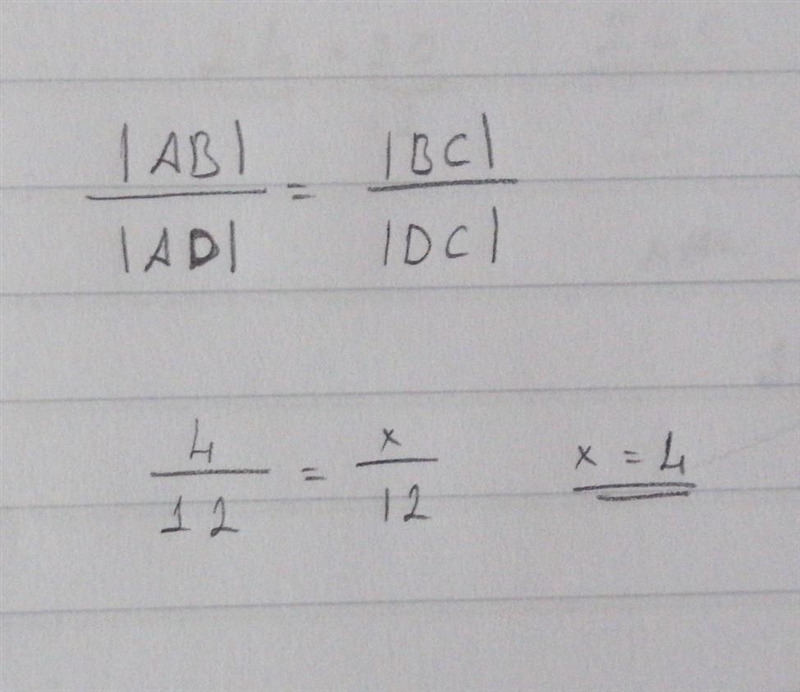 |AB| / |AD| = |BC| / |DC|
4 / 12 = x / 12 x = 4